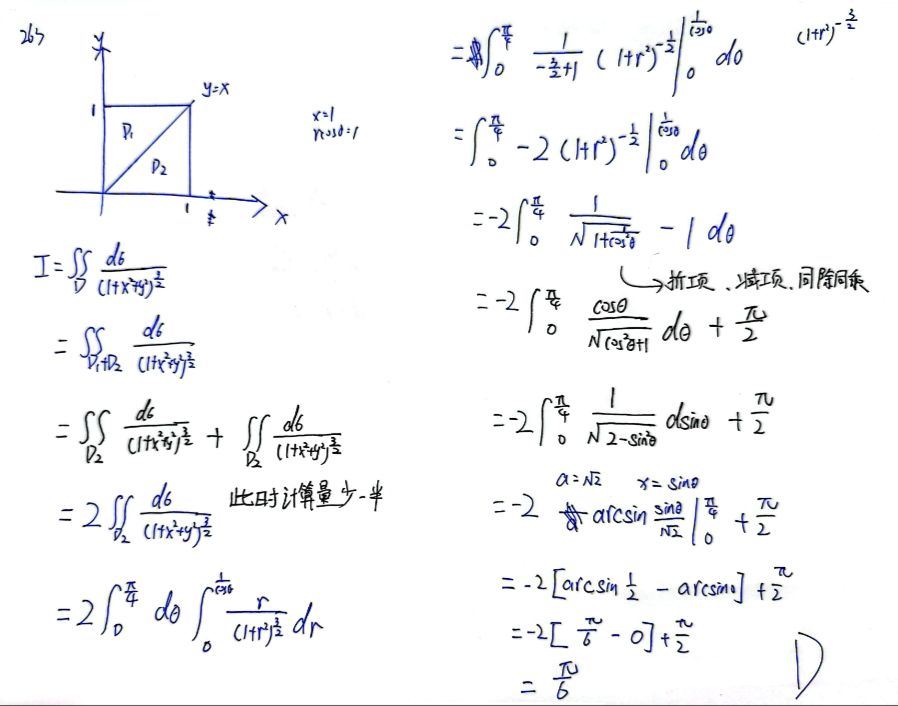 263
y
1
y=x
D₁
D₂
1
x
x=1
rcosθ=1
I=∬_D dσ/(1+x²+y²)^{3/2}
=∬_{D₁+D₂} dσ/(1+x²+y²)^{3/2}
=∬_{D₂} dσ/(1+x²+y²)^{3/2} + ∬_{D₂} dσ/(1+x²+y²)^{3/2}
=2∬_{D₂} dσ/(1+x²+y²)^{3/2} 此时计算量少一半
=2∫_0^{π/4} dθ ∫_0^{1/cosθ} r/(1+r²)^{3/2} dr
=∫_0^{π/4} 1/(-3/2+1) (1+r²)^{-1/2} |_0^{1/cosθ} dθ
(1+r²)^{-3/2}
=∫_0^{π/4} -2(1+r²)^{-1/2} |_0^{1/cosθ} dθ
=-2∫_0^{π/4} 1/√(1+1/cos²θ) -1 dθ
→拆项、减项、同除同乘
=-2∫_0^{π/4} cosθ/√(cos²θ+1) dθ + π/2
=-2∫_0^{π/4} 1/√(2-sin²θ) dsinθ + π/2
a=√2 x=sinθ
=-2 arcsin sinθ/√2 |_0^{π/4} + π/2
=-2[arcsin 1/2 - arcsin0] + π/2
=-2[π/6 - 0] + π/2
=π/6
D